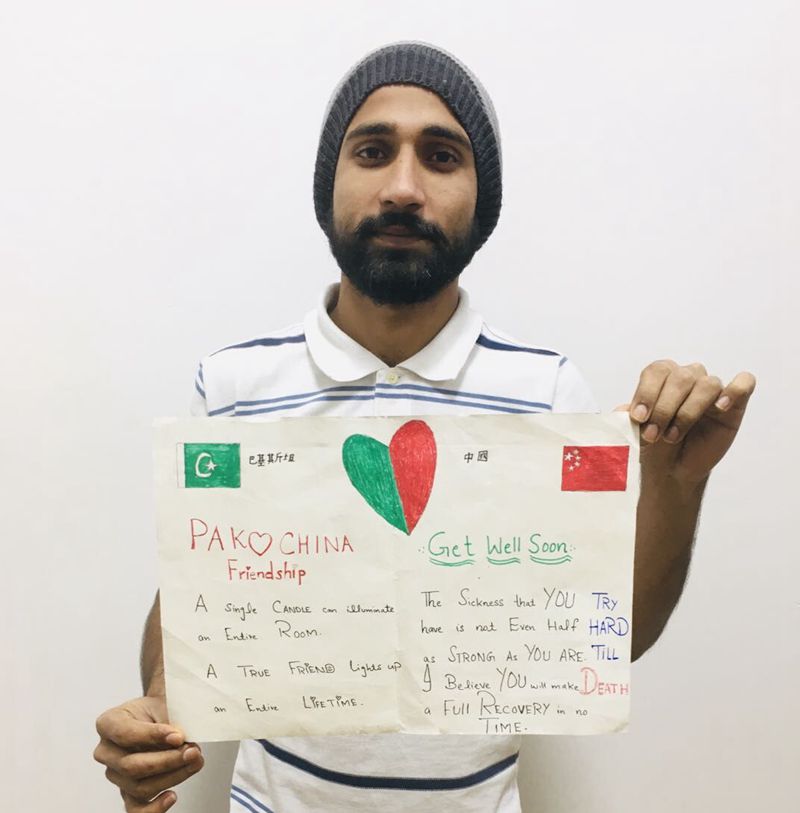 巴基斯坦
中國
PAK♡CHINA
Friendship
A Single CANDLE can illuminate
an Entire ROOM.
A TRUE FRIEND Lights up
an Entire LIFETIME.
Get Well Soon
The Sickness that YOU
have is not Even Half
as STRONG As YOU ARE.
I Believe YOU will make
a Full RECOVERY in no
TIME.
TRY
HARD
TILL
DEATH